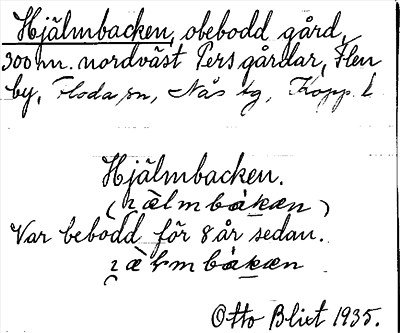 Hjälmbacken, obebodd gård,
300 m. nordväst Pers gårdar, Flen
by, Floda sn, Nås tg, Kopp. l.
Hjälmbacken.
Var bebodd för 8 år sedan.
Otto Blixt 1935.